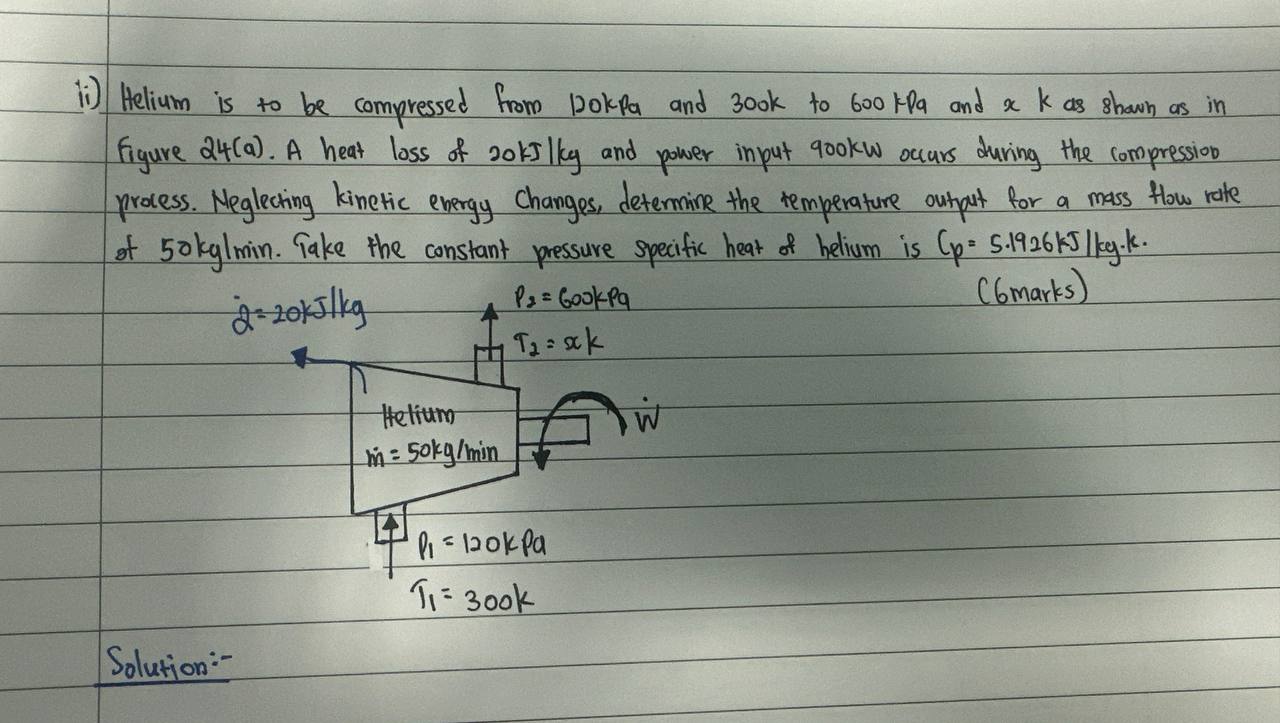 ii) Helium is to be compressed from 120kPa and 300k to 600 kPa and x k as shown as in
figure 24(a). A heat loss of 20kJ/kg and power input 900kW occurs during the compression
process. Neglecting kinetic energy changes, determine the temperature output for a mass flow rate
of 50kg/min. Take the constant pressure specific heat of helium is Cp= 5.1926kJ/kg.k.
(6marks)
q̇=20kJ/kg
P₂=600kPa
T₂=xk
Helium
ṁ=50kg/min
Ẇ
P₁=120kPa
T₁=300k
Solution:-